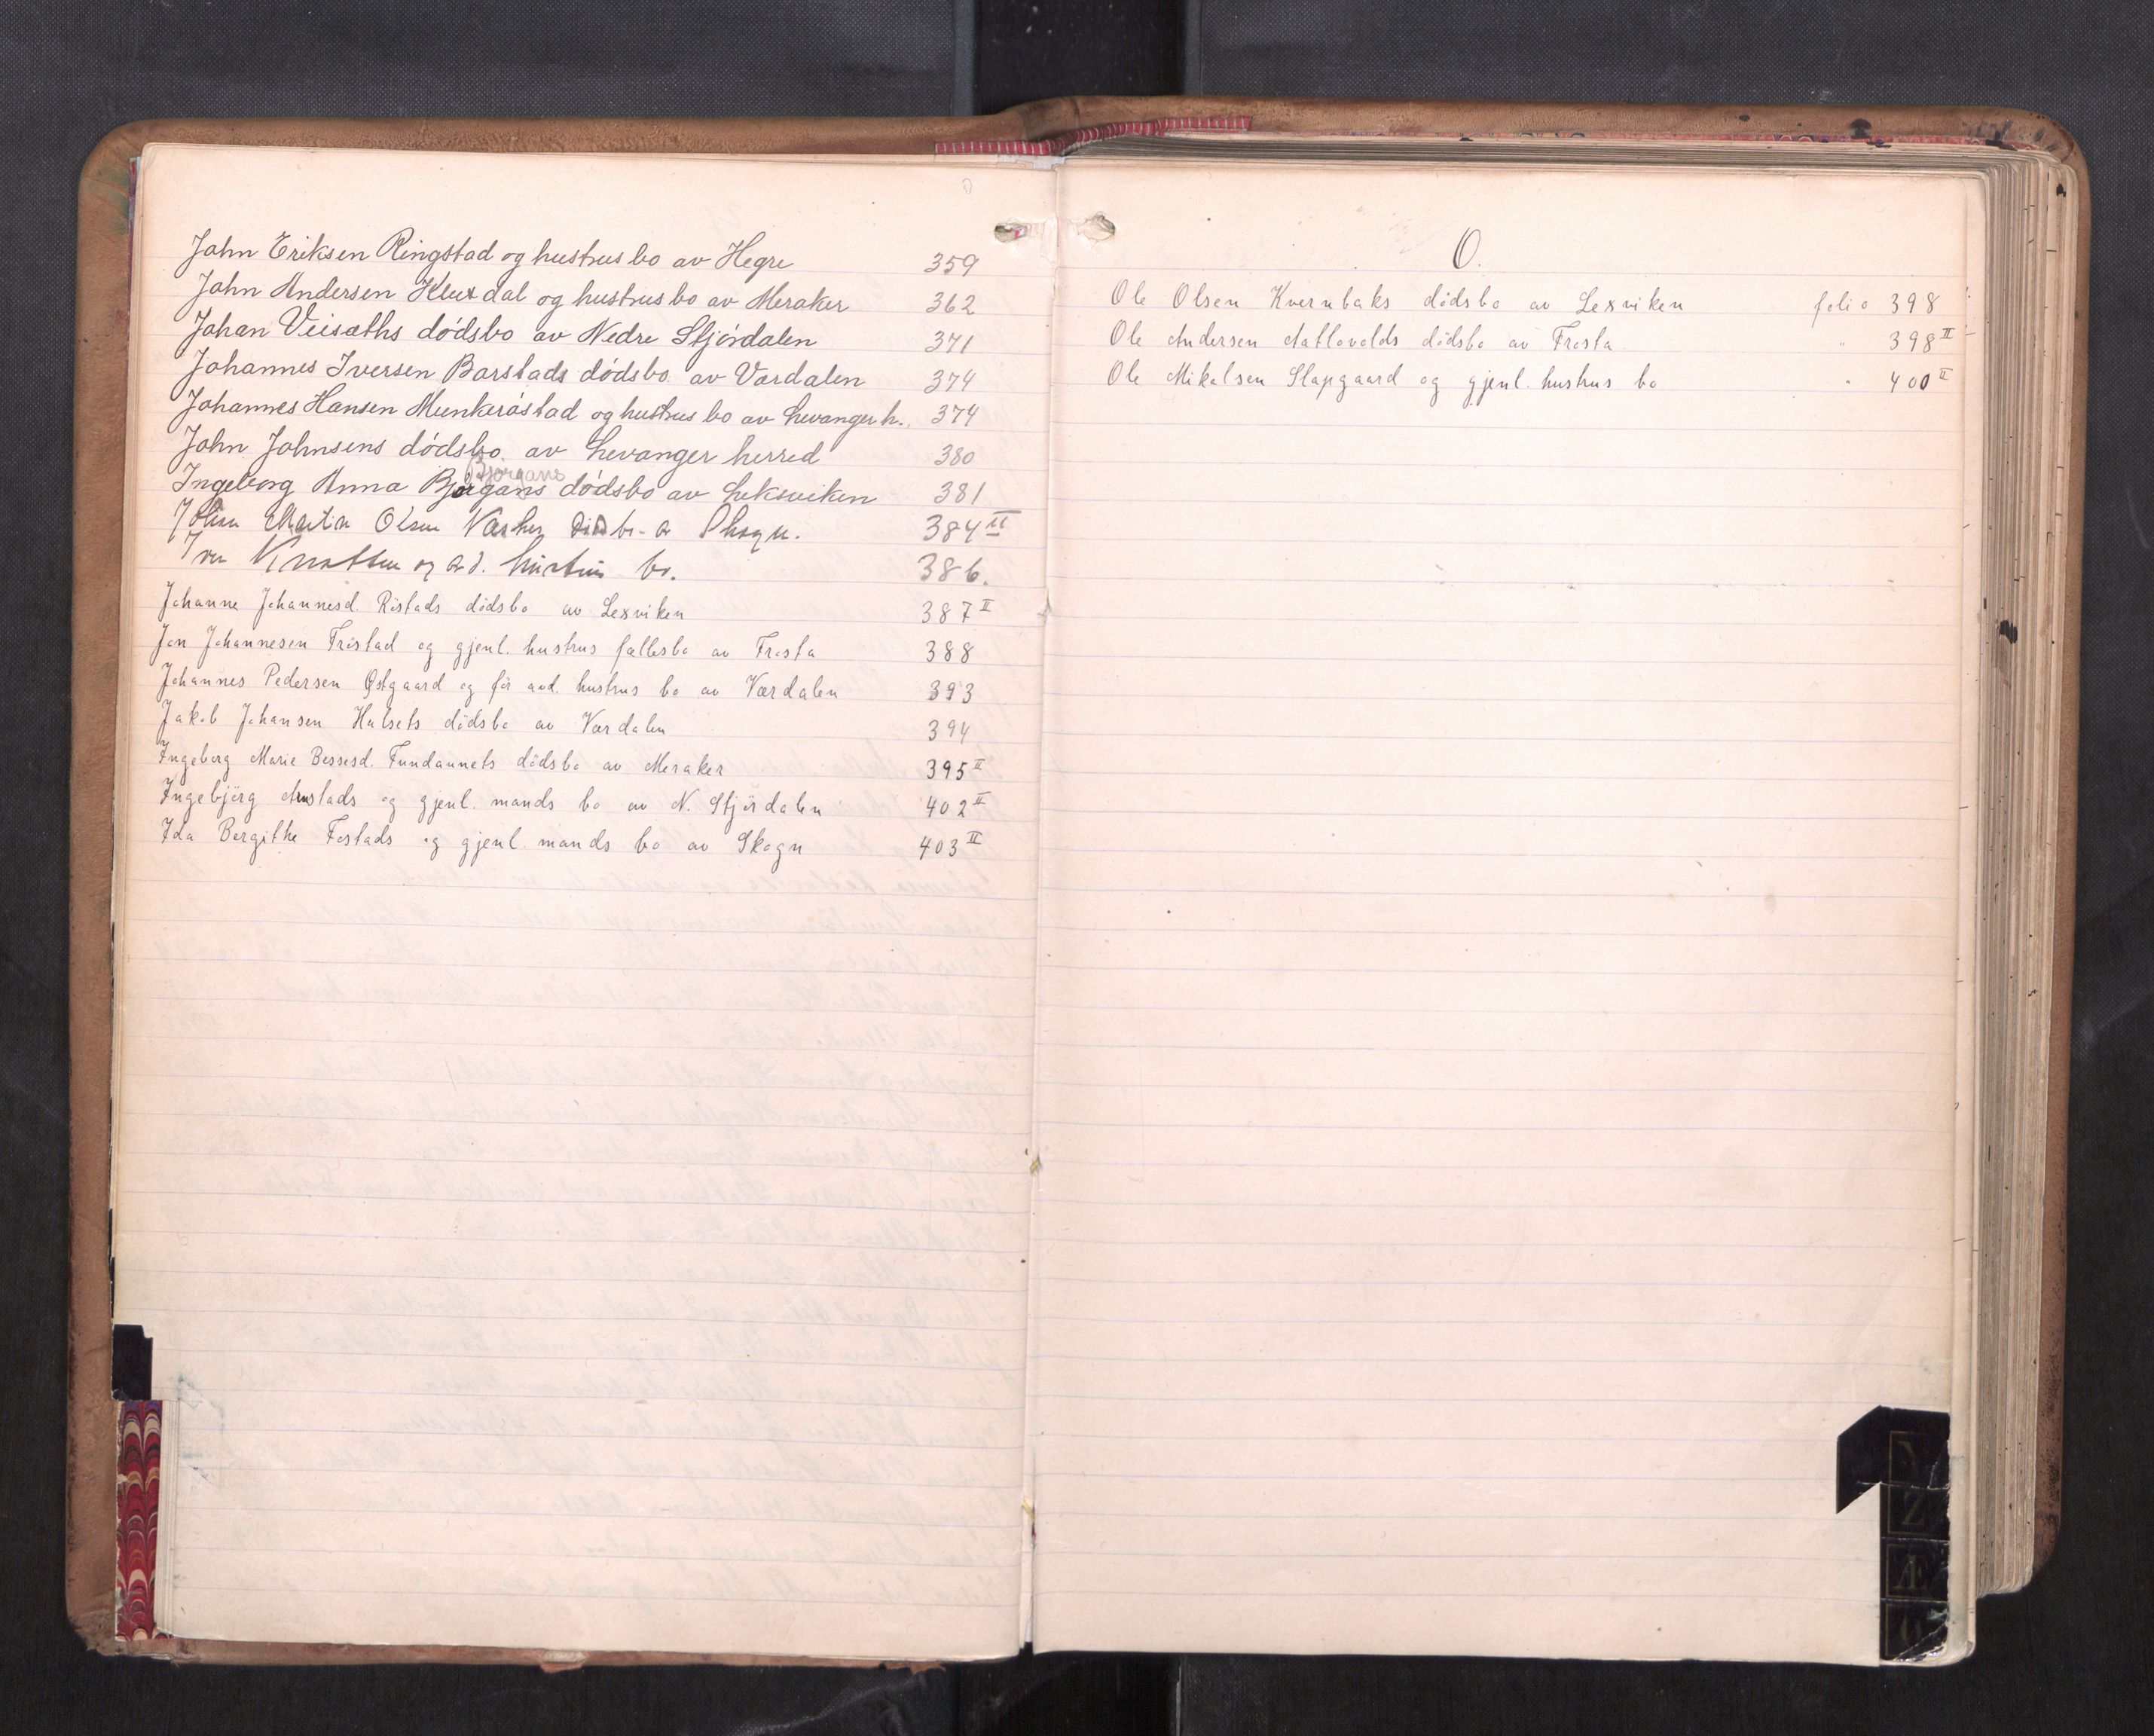 John Eriksen Ringstad og hustrus bo av Hegre 359
John Andersen Kluxdal og hustrus bo av Meraker 362
Johan Veisæths dödsbo av Nedre Stjördalen 371
Johannes Iversen Barstads dödsbo av Værdalen 374
Johannes Hansen Munkeröstad og hustrus bo av Levanger h. 374
John Johnsens dödsbo av Levanger herred 380
Bjørgans
Ingeborg Anna Bjørgans dödsbo av Leksviken 381
Johan Martin Olsen bo Skogn. 384 II
og hustrus bo. 386.
Johanne Johannesd. Röstads dödsbo av Lexviken 387 II
Jon Johannesen Tröstad og gjenl. hustrus fællesbo av Frosta 388
Johannes Pedersen Østgaard og för avd. hustrus bo av Værdalen 393
Jakob Johansen Halsets dödsbo av Værdalen 394
Ingeborg Marie Bessesd. Fundaunets dödsbo av Meraker 395 II
Ingebjörg Arnstads og gjenl. mands bo av N. Stjördalen 402 II
Ida Bergithe Fostads og gjenl. mands bo av Skogn 403 II
O.
Ole Olsen Kvernbaks dödsbo av Lexviken folio 398
Ole Andersen dödsbo av Frosta " 398 II
Ole Mikalsen Slapgaard og gjenl. hustrus bo " 400 II
Y
Z
Æ